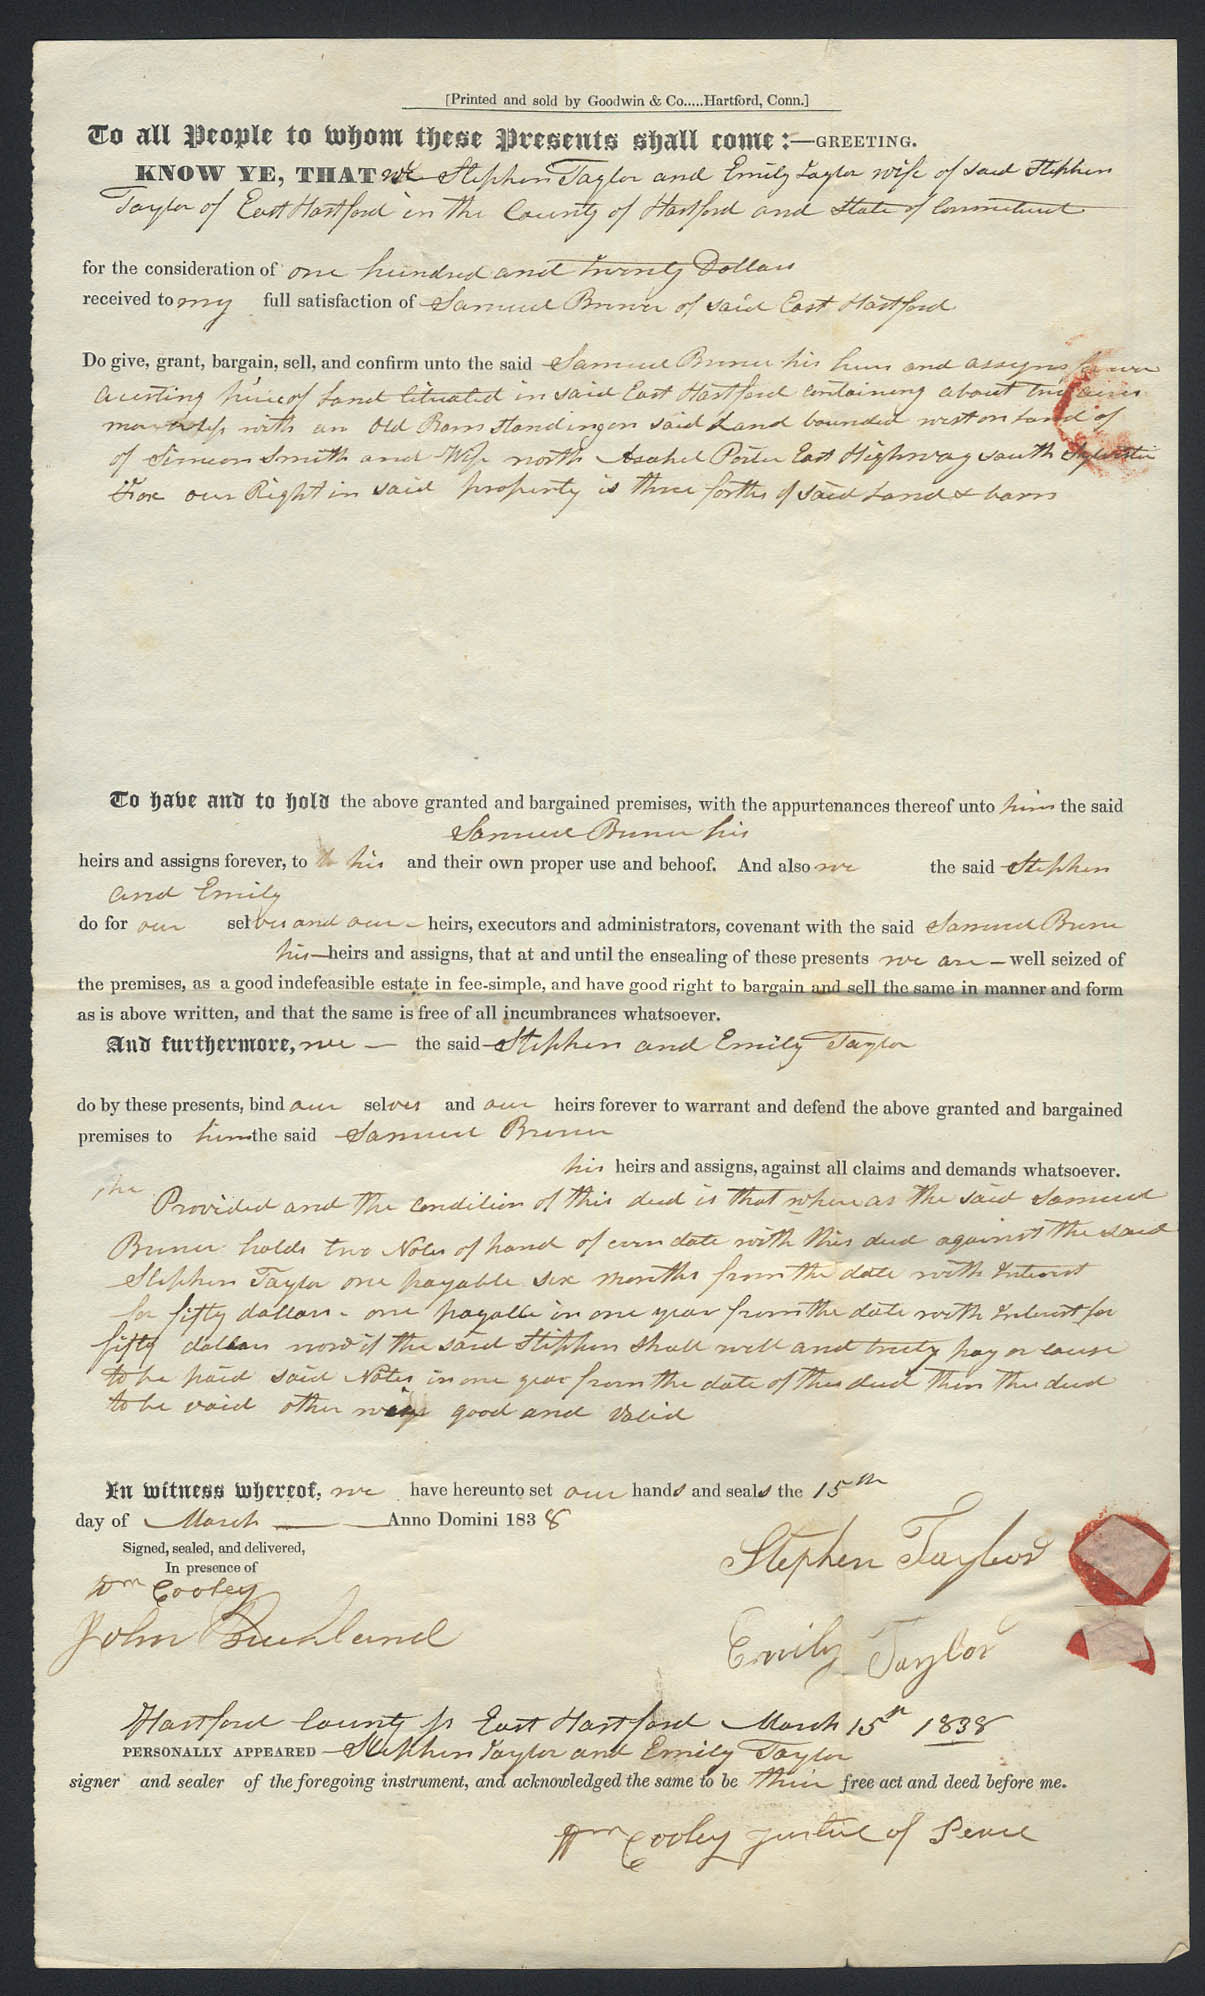 [Printed and sold by Goodwin & Co.....Hartford, Conn.]
To all People to whom these Presents shall come:—GREETING.
KNOW YE, THAT we Stephen Taylor and Emily Taylor wife of said Stephen
Taylor of East Hartford in the County of Hartford and State of Connecticut
for the consideration of one hundred and twenty Dollars
received to my full satisfaction of Samuel Bruner of said East Hartford
Do give, grant, bargain, sell, and confirm unto the said Samuel Bruner his heirs and assigns forever
a certing piece of Land lituated in said East Hartford containing about two acres
more or less with an Old Barn standing on said Land bounded west on Land of
of Simeon Smith and Wife north Asahel Porter East Highway south Sylvester
Fox our Right in said property is three forths of said Land & barn
To have and to hold the above granted and bargained premises, with the appurtenances thereof unto him the said
Samuel Bruner his
heirs and assigns forever, to his and their own proper use and behoof. And also we the said Stephen
and Emily
do for our selves and our heirs, executors and administrators, covenant with the said Samuel Bruner
his heirs and assigns, that at and until the ensealing of these presents we are well seized of
the premises, as a good indefeasible estate in fee-simple, and have good right to bargain and sell the same in manner and form
as is above written, and that the same is free of all incumbrances whatsoever.
And furthermore, we the said Stephen and Emily Taylor
do by these presents, bind our selves and our heirs forever to warrant and defend the above granted and bargained
premises to him the said Samuel Bruner
his heirs and assigns, against all claims and demands whatsoever.
The Provided and the condition of this deed is that where as the said Samuel
Bruner holds two Notes of hand of even date with this deed against the said
Stephen Taylor one payable six months from the date with Interest
for fifty dollars - one payable in one year from the date with Interest for
fifty dollars now if the said Stephen shall well and truly pay or cause
to be paid said Notes in one year from the date of this deed then this deed
to be void other wise good and valid
In witness whereof, we have hereunto set our hands and seals the 15th
day of March Anno Domini 1838
Signed, sealed, and delivered,
In presence of
Wm Cooley
John Buckland
Stephen Taylor
Emily Taylor
Hartford County ss East Hartford March 15th 1838
PERSONALLY APPEARED Stephen Taylor and Emily Taylor
signer and sealer of the foregoing instrument, and acknowledged the same to be thier free act and deed before me.
Wm Cooley Justice of Peace